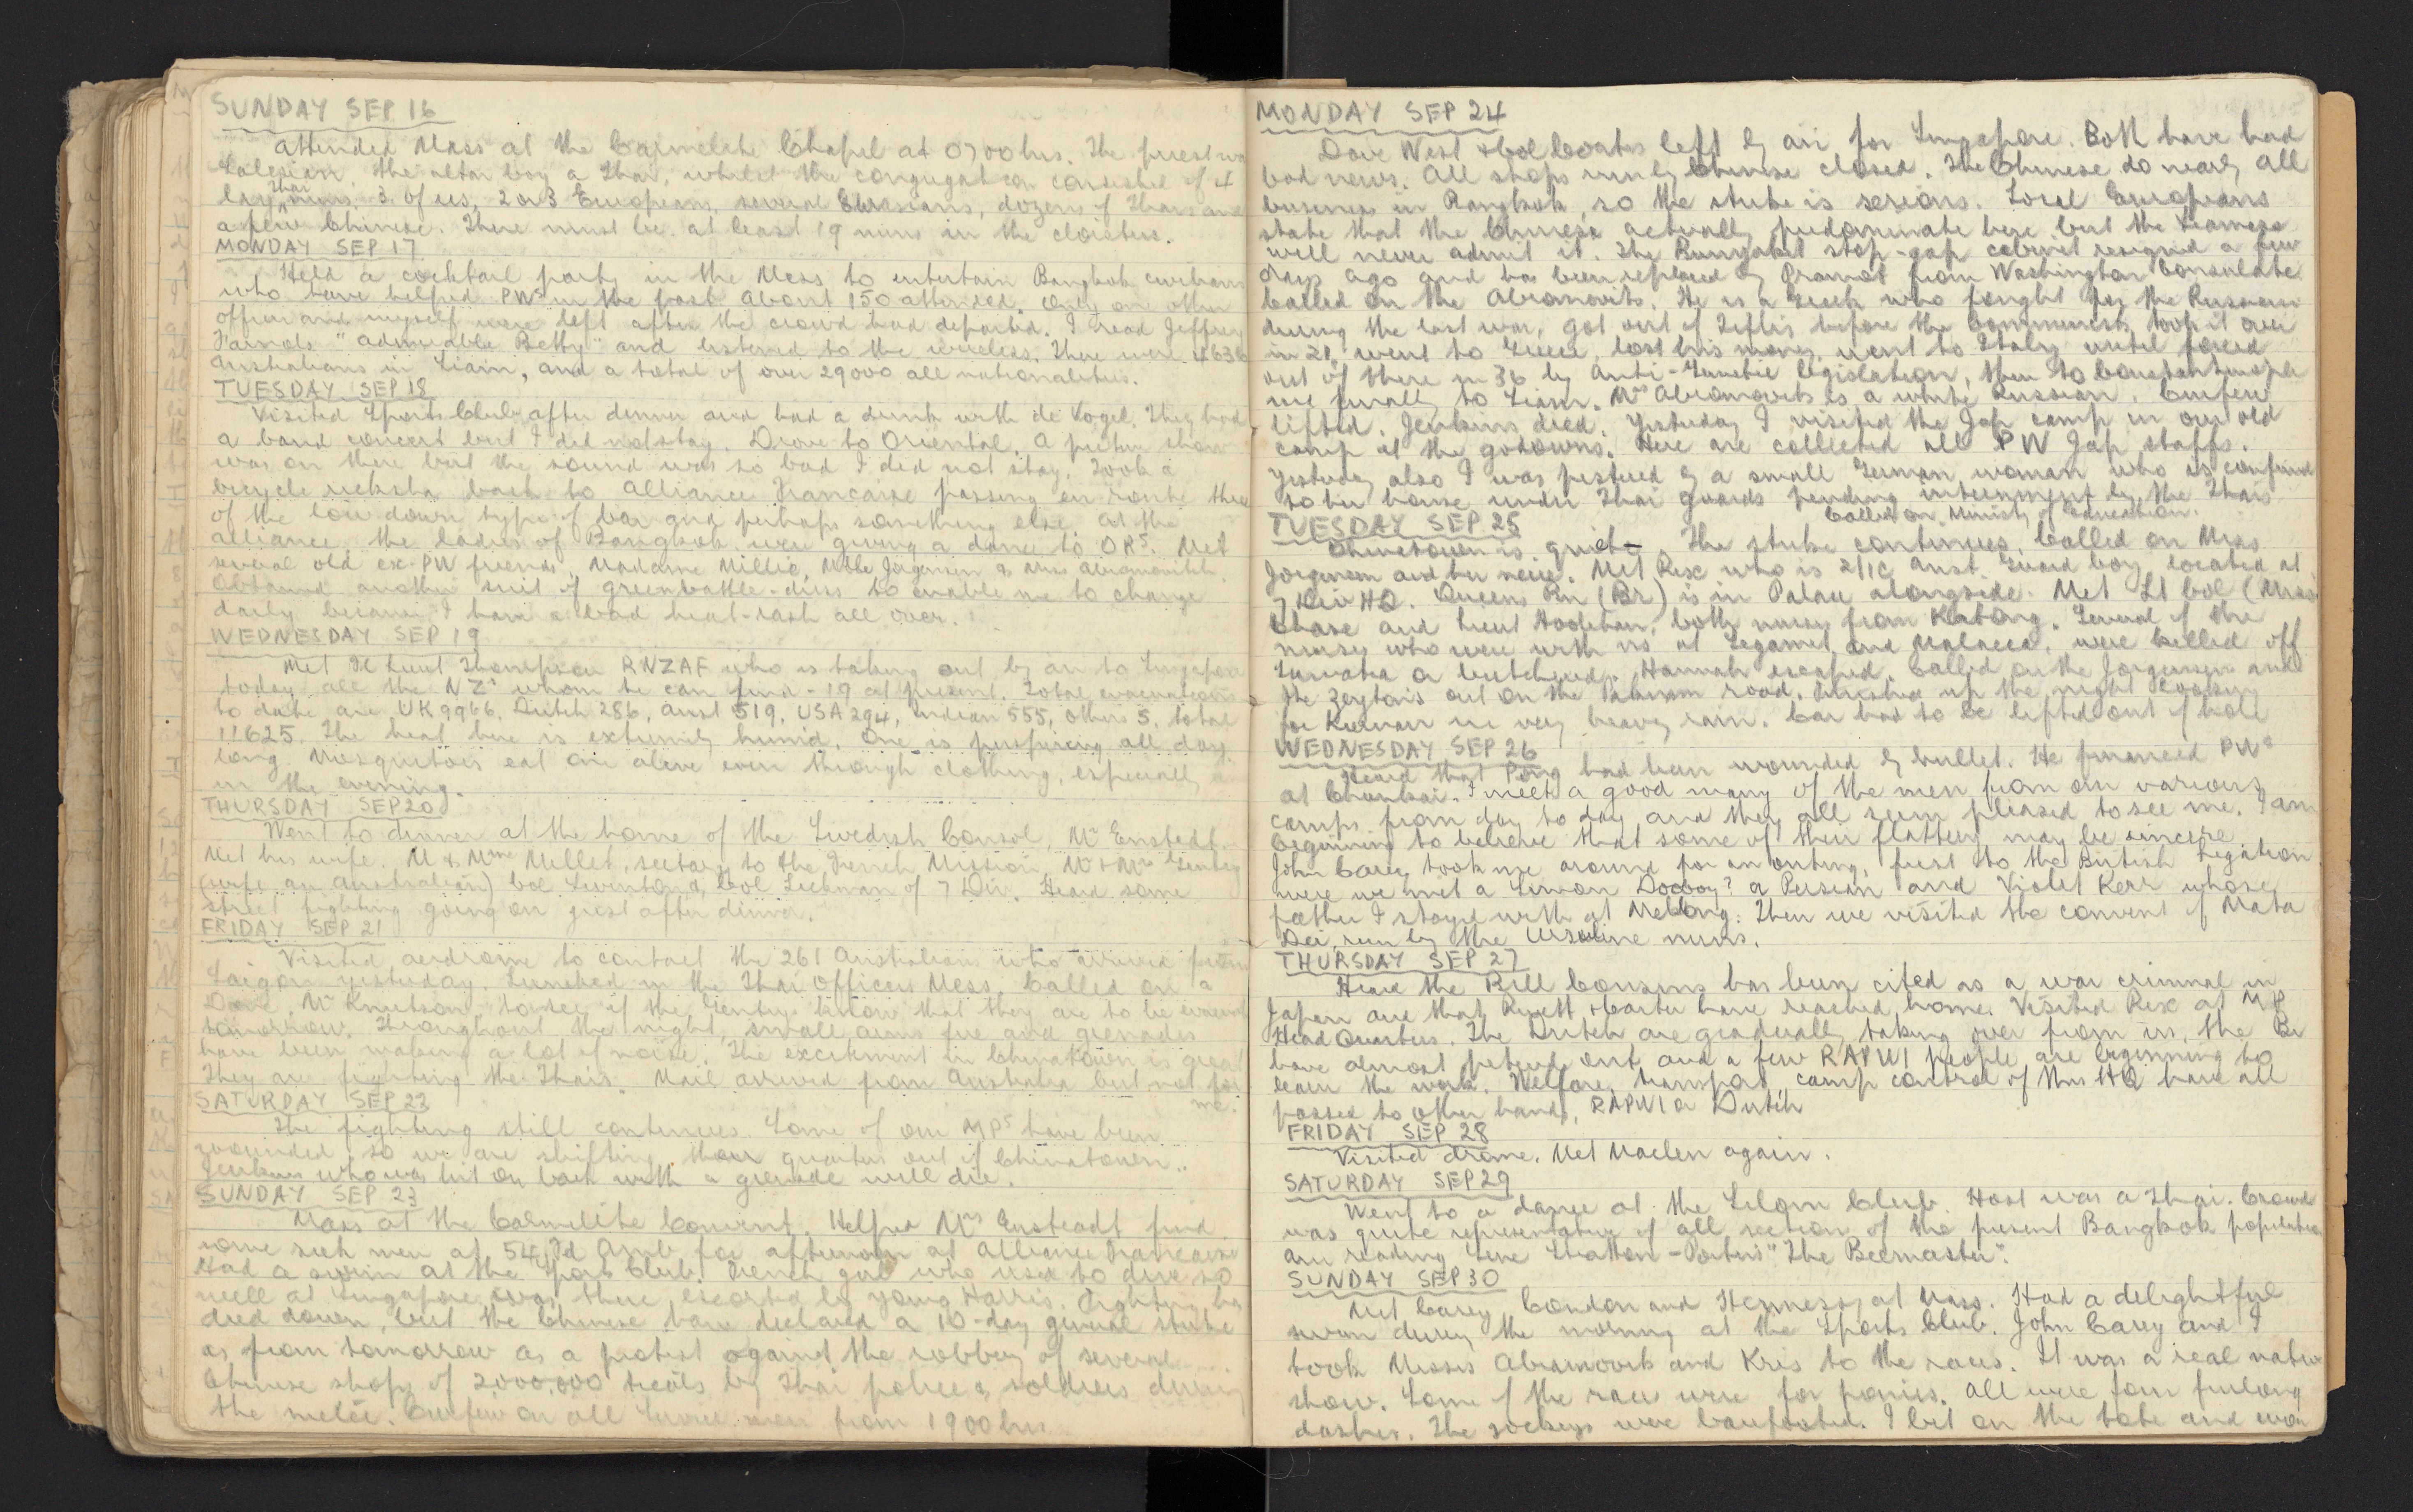 SUNDAY SEP 16
Attended Mass at the Carmelite Chapel at 0700 hrs. The priest was
Salesian, the altar boy a Thai, whilst the congregation consisted of 4
lay Thai nuns, 3 of us, 2 or 3 Europeans, several Eurasians, dozens of Thais and
a few Chinese. There must be at least 19 nuns in the cloisters.
MONDAY SEP 17
Held a cocktail party in the Mess to entertain Bangkok civilians
who have helped PWs in the past. About 150 attended. Only one other
officer and myself were left after the crowd had departed. I read Jeffrey
Farnols "Admirable Betty" and listened to the wireless. There were 4636
Australians in Siam, and a total of over 29000 all nationalities.
TUESDAY SEP 18
Visited Sports Club after dinner and had a drink with de Vogel. They had
a band concert but I did not stay. Drove to Oriental. A picture show
was on there but the sound was so bad I did not stay. Took a
bicycle ricksha back to Alliance Francaise passing en route three
of the low down type of bar and perhaps something else. At the
alliance the ladies of Bangkok were giving a dance to ORs. Met
several old ex-PW friends, Madame Millie, Mdlle Jorgensen & Miss Abramovitch.
Obtained another suit of green battle-dress to enable me to change
daily because I have a bad heat-rash all over.
WEDNESDAY SEP 19
Met Fl Lieut Thompson RNZAF who is taking out by air to Singapore
today all the NZs whom he can find - 19 at present. Total evacuations
to date are UK 9966, Dutch 286, Aust 519, USA 294, Indian 555, others 5, total
11625. The heat here is extremely humid. One is perspiring all day
long. Mosquitoes eat one alive even through clothing, especially
in the evening.
THURSDAY SEP 20
Went to dinner at the home of the Swedish Consol, Mr Enstedt.
Met his wife. M & Mme Millet, sectary to the French Mission, Mr & Mrs Gentry
(wife an Australian) Col Swinton &, Col Leekman of 7 Div. Heard some
street fighting going on just after dinner.
FRIDAY SEP 21
Visited aerdrome to contact the 261 Australians who arrived from
Saigon yesterday. Lunched in the Thai Officers Mess. Called on a
Dane, Mr Knutson, to see if the Gentrys know that they are to be evacuated
tomorrow. Throughout the night, small arms fire and grenades
have been making a lot of noise. The excitement in Chinatown is great
They are fighting the Thais. Mail arrived from Australia but not for
me.
SATURDAY SEP 22
The fighting still continues. Some of our MPs have been
wounded so we are shifting their quarters out of Chinatown.
Jenkins who was hit on back with a grenade will die.
SUNDAY SEP 23
Mass at the Carmelite Convent. Helped Mrs Ensteadt find
some sick men at 54 Id Amb for afternoon at Alliance Francaise
Had a swim at the Sports Club. French girl who used to dive so
well at Singapore was there escorted by young Harris. Fighting has
died down, but the Chinese have declared a 10-day general strike
as from tomorrow as a protest against the robbery of several
Chinese shops of 2,000,000 ticals by Thai police & soldiers during
the melée. Curfew on all Service men from 1900 hrs
MONDAY SEP 24
Dave West & Col Coates left by air for Singapore. Both have had
bad news. All shops run by Chinese closed. The Chinese do nearly all
business in Bangkok, so the strike is serious. Local Europeans
state that the Chinese actually predominate here but the Siamese
will never admit it. The stop-gap cabinet resigned a few
days ago and has been replaced by Pramot from Washington Consulate
Called on the Abramovits. He is a Greek who fought for the Russians
during the last war, got out of Tiflis before the Communists took it over
in 21, went to Greece, lost his money, went to Italy until forced
out of there in 36 by Anti-Semetic legislation, then to Constantinople
and finally to Siam. Mrs Abramovits is a white Russian. Curfew
lifted. Jenkins died. Yesterday I visited the Jap camp in our old
camp at the godowns. Here are collected all PW Jap staffs.
Yesterday also I was pestered by a small German woman who is confined
to her house under Thai guards pending internment by the Thais
Called on Ministry of Education.
TUESDAY SEP 25
Chinatown is quiet - The strike continues. Called on Miss
Jorgensen and her neice. Met Rex who is 2/ic Aust. Guard boy, located at
7 Div HQ. Queens Rn (Br) is in Palace alongside. Met Lt Col (Miss)
Chase and Lieut Hoolihan, both nurses from Katong. Several of the
nurses who were with us at Segamat and Malacca, were killed off
Sumatra or butchered. Hannah escaped. Called on the Jorgensens and
the Zeyton's out on the road. Finished up the night looking
for Kirwan in very heavy rain. Car had to be lifted out of hole
WEDNESDAY SEP 26
Heard that Pong had been wounded by bullet. He financed PWs
at Chunkai. I meet a good many of the men from our various
camps from day to day and they all seem pleased to see me. I am
beginning to believe that some of their flattery may be sincere
John Carey took me around for an outing, first to the British Legation
were we met a Simon Dooboy? a Persian and Violet Kerr whose
father I stayed with at Meklong. Then we visited the convent of Mata
Dei, run by the Ursuline nuns.
THURSDAY SEP 27
Heard the Bill Cousins has been cited as a war criminal in
Japan and that Rivett & Carter have reached home. Visited Rex at MP
Head Quarters. The Dutch are gradually taking over from us. The Br
have almost petered out and a few RAPWI people are beginning to
learn the work. Welfare, transport, camp control of this HQ have all
passed to other hands, RAPWI or Dutch
FRIDAY SEP 28
Visited drome. Met Maclen again.
SATURDAY SEP 29
Went to a dance at the Silom Club. Host was a Thai. Crowd
was quite representative of all section of the present Bangkok population
am reading Gene Stratton-Porter's "The Beemaster".
SUNDAY SEP 30
Met Carey, Condon and Hennessy at Mass. Had a delightful
swim during the morning at the Sports Club. John Carey and I
took Misses Abramovits and Kris to the races. It was a real native
show. Some of the race were for ponies. All were four furlong
dashes. The jockeys were barefooted. I bet on the tote and won